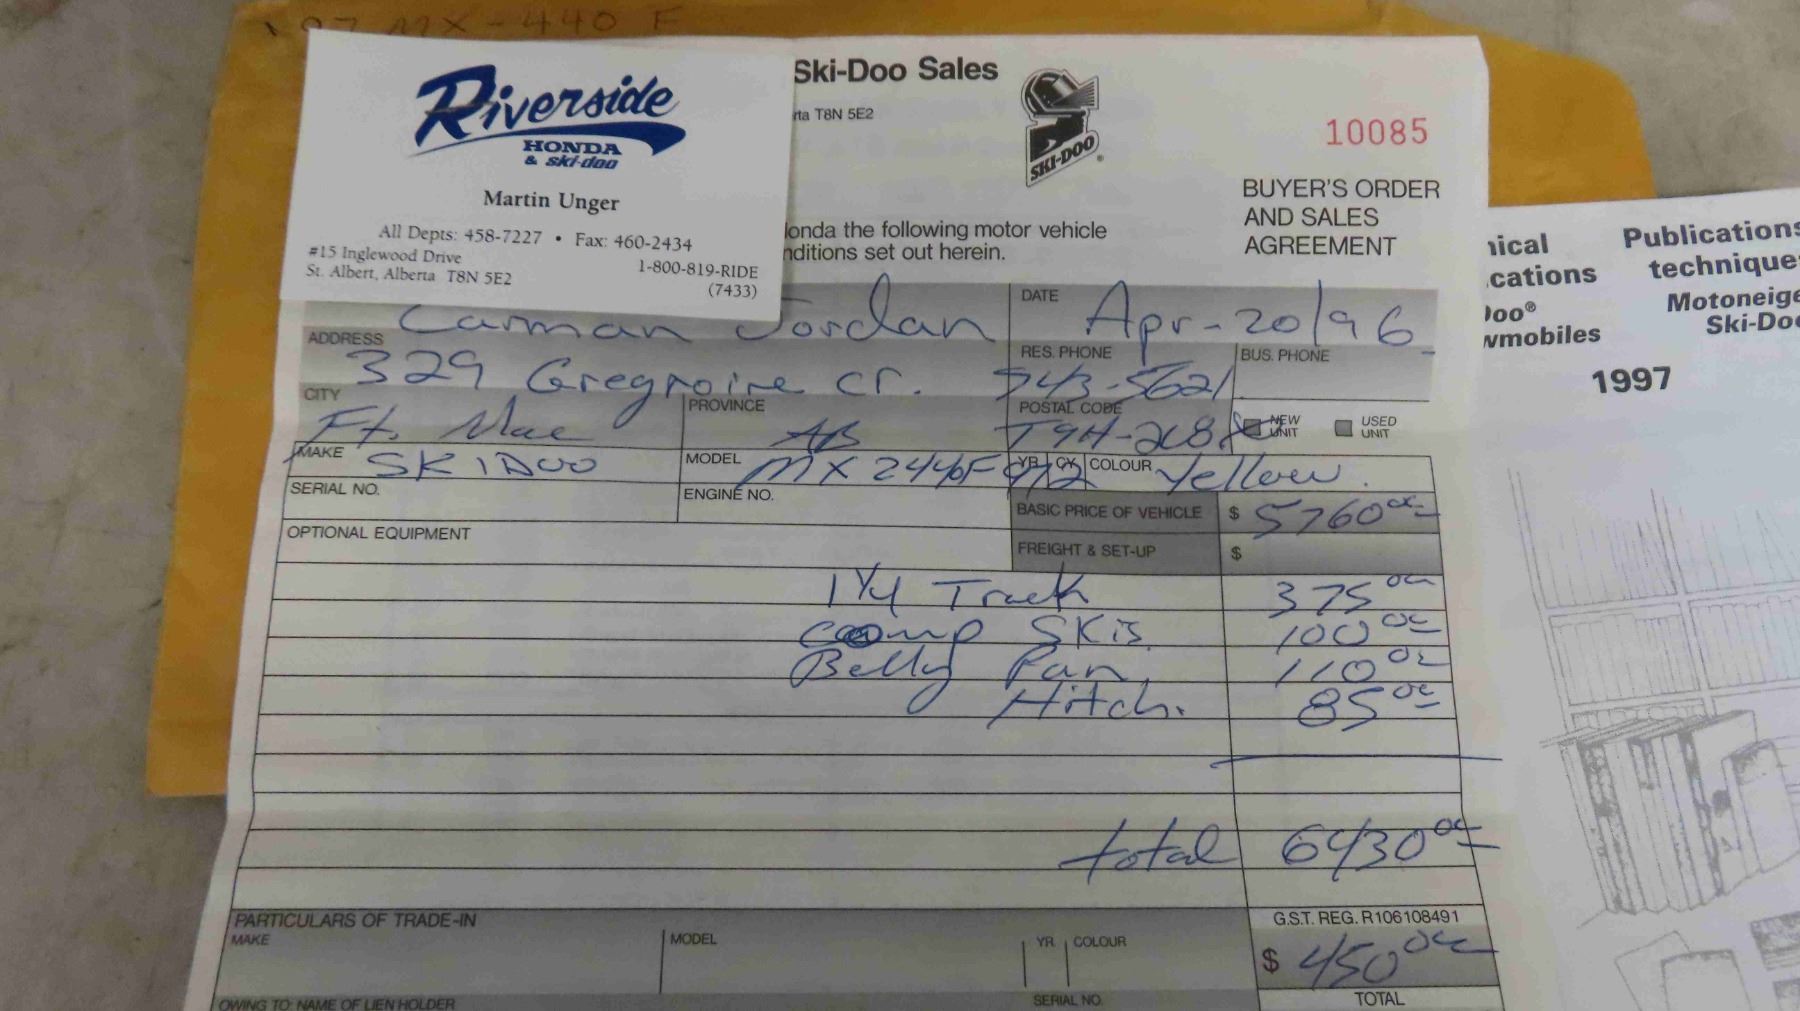 '97 MX-440 F
Riverside
HONDA
& ski-doo
Martin Unger
All Depts: 458-7227 • Fax: 460-2434
#15 Inglewood Drive
1-800-819-RIDE
St. Albert, Alberta T8N 5E2
(7433)
Ski-Doo Sales
rta T8N 5E2
SKI-DOO
10085
BUYER'S ORDER
AND SALES
AGREEMENT
onda the following motor vehicle
nditions set out herein.
Carman Jordan
DATE Apr-20/96
ADDRESS 329 Gregnoire cr.
RES. PHONE 743-5621
BUS. PHONE
CITY Ft. Mac
PROVINCE AB
POSTAL CODE T9H-2L8
NEW UNIT
USED UNIT
MAKE SKIDOO
MODEL MX 2440F
YR. 97 CY. 2 COLOUR Yellow.
SERIAL NO.
ENGINE NO.
BASIC PRICE OF VEHICLE $ 5760 00
OPTIONAL EQUIPMENT
FREIGHT & SET-UP $
1 1/4 Track 375 00
comp SKis. 100 00
Belly Pan, 110 00
Hitch. 85 00
total 6430 00
PARTICULARS OF TRADE-IN
G.S.T. REG. R106108491
MAKE
MODEL
YR.
COLOUR
$ 450 00
OWING TO: NAME OF LIEN HOLDER
SERIAL NO.
TOTAL
nical
cations
Doo®
wmobiles
Publications
technique
Motoneige
Ski-Doo
1997